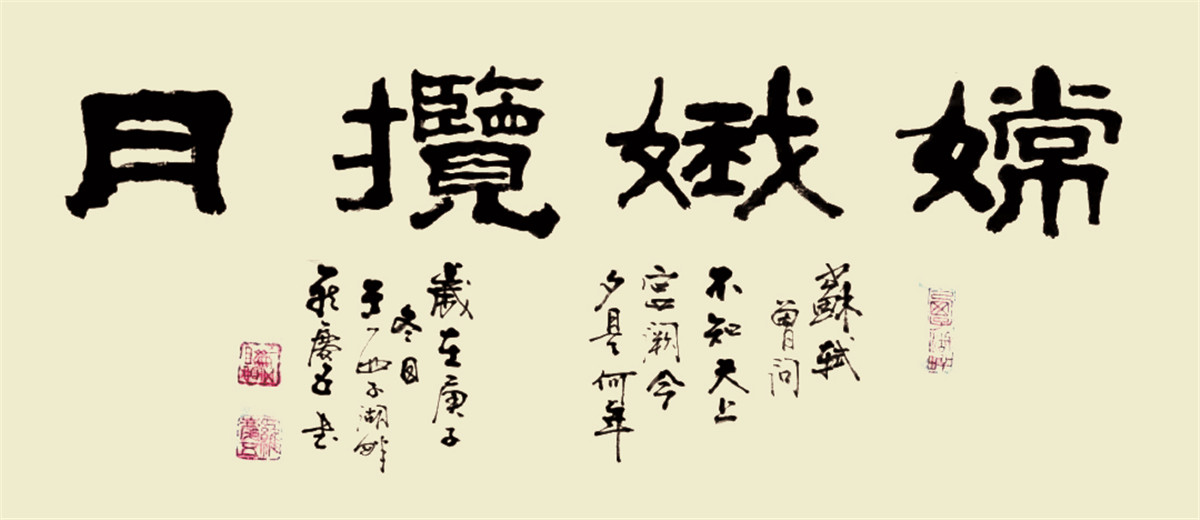 嫦娥攬月
蘇軾
曾問
不知天上
宮闕今
夕是何年
歲在庚子
冬日
于西子湖畔
慶五书